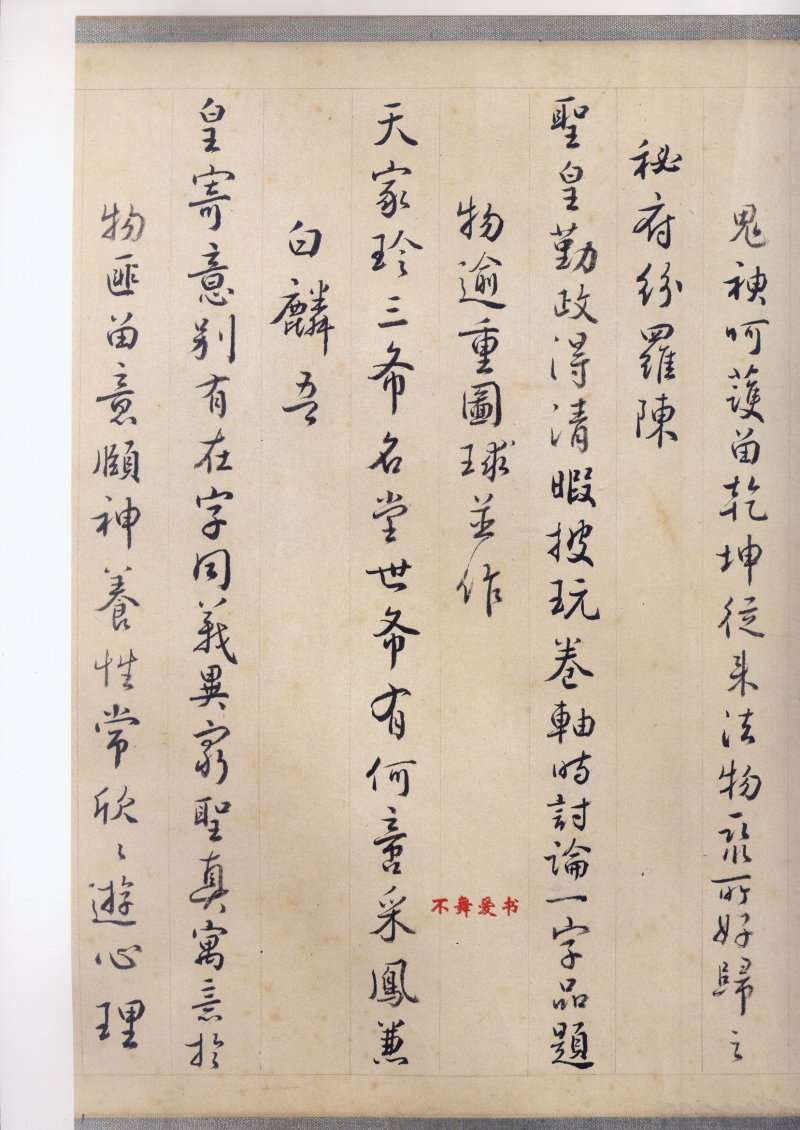 鬼神呵護留乾坤從来法物聚所好歸之
秘府紛羅陳
聖皇勤政得清暇披玩卷軸時討論一字品題
物逾重圖球並作
天家珍三希名堂世希有何啻采鳳兼
白麟吾
皇寄意别有在字同義異家聖真寓意於
物匪留意頤神養性常欣〻遊心理
不舞爱书